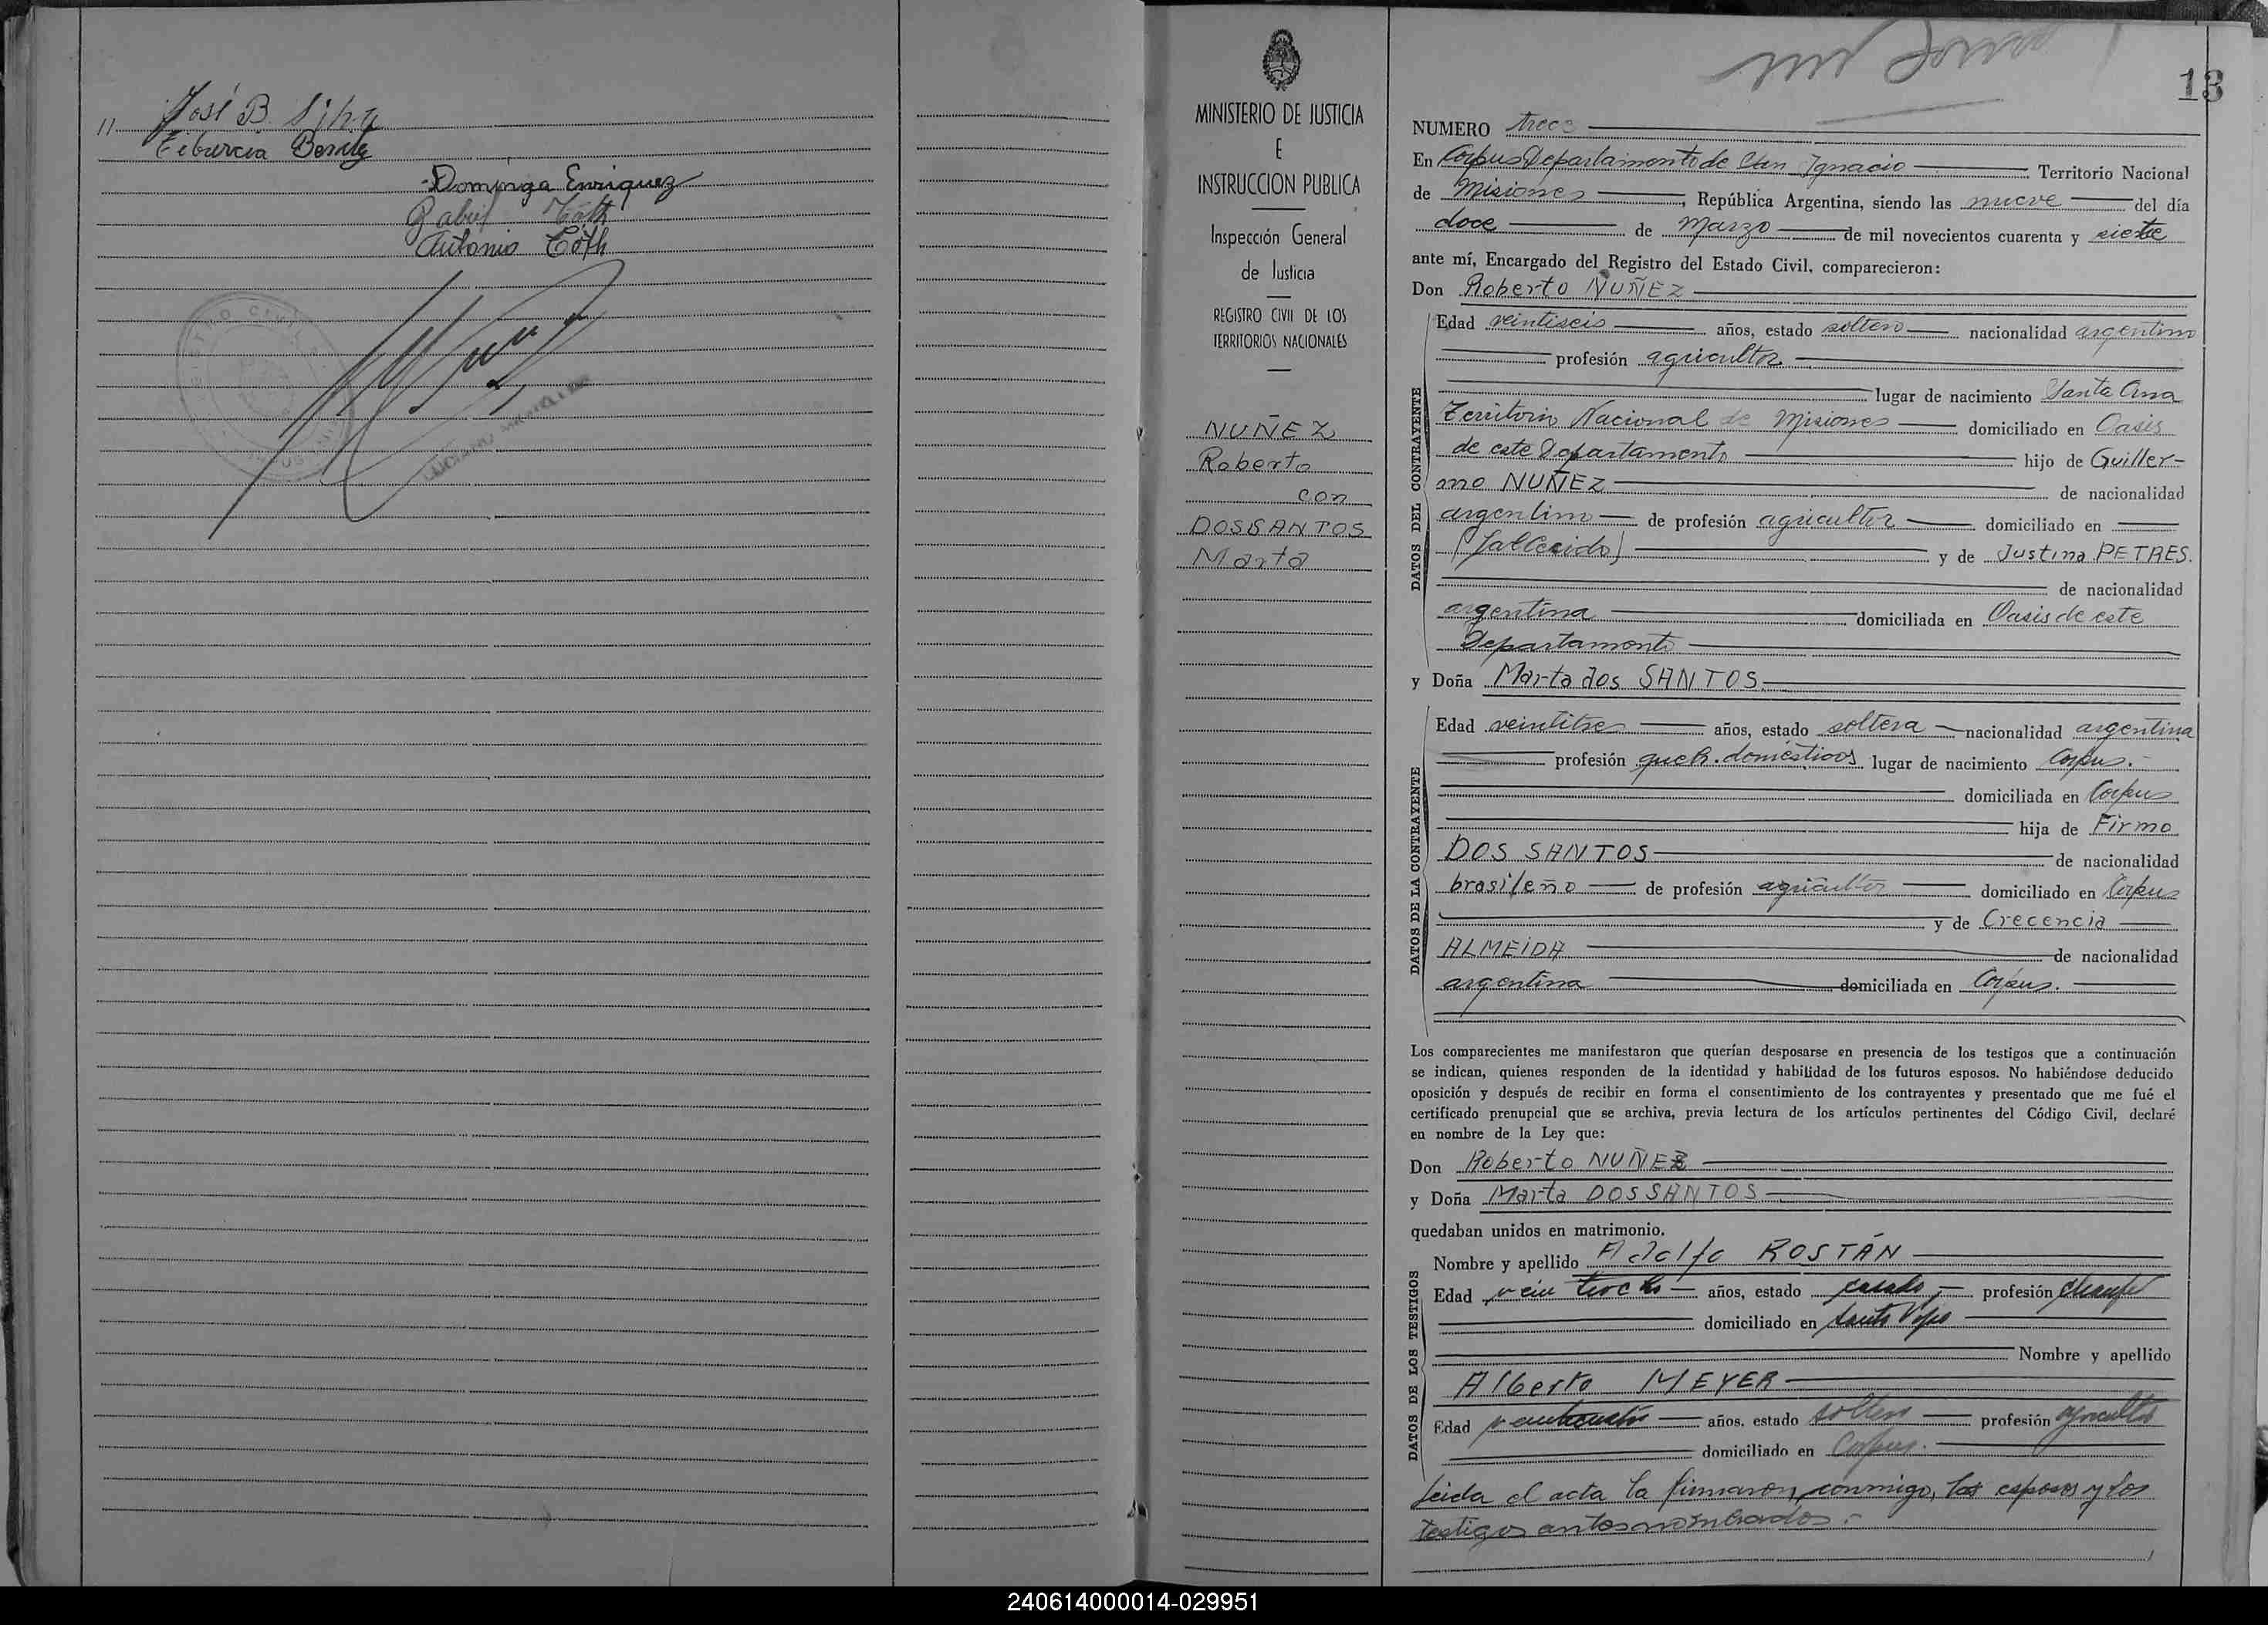 11 José B. Silva
Tiburcia Benitz
Dominga Enriquez
Gabriel Tóth
Antonio Tóth
REGISTRO CIVIL
MINISTERIO DE JUSTICIA
E
INSTRUCCION PUBLICA
Inspección General
de Justicia
REGISTRO CIVIL DE LOS
TERRITORIOS NACIONALES
NUÑEZ
Roberto
con
DOSSANTOS
Marta
13
NUMERO trece
En Corpus Departamento de San Ignacio Territorio Nacional
de Misiones, República Argentina, siendo las nueve del día
doce de Marzo de mil novecientos cuarenta y siete
ante mí, Encargado del Registro del Estado Civil, comparecieron:
Don Roberto NUÑEZ
DATOS DEL CONTRAYENTE
Edad veintiseis años, estado soltero nacionalidad argentino
profesión agricultor
lugar de nacimiento Santa Ana
Territorio Nacional de Misiones domiciliado en Oasis
de este Departamento hijo de Guiller-
mo NUÑEZ de nacionalidad
argentino de profesión agricultor domiciliado en
(fallecido) y de Justina PETRES.
de nacionalidad
argentina domiciliada en Oasis de este
Departamento
y Doña Marta dos SANTOS.
DATOS DE LA CONTRAYENTE
Edad veintitres años, estado soltera nacionalidad argentina
profesión queh. domésticos lugar de nacimiento Corpus.-
domiciliada en Corpus
hija de Firmo
DOS SANTOS de nacionalidad
brasileño de profesión agricultor domiciliado en Corpus
y de Crecencia
ALMEIDA de nacionalidad
argentina domiciliada en Corpus.
Los comparecientes me manifestaron que querían desposarse en presencia de los testigos que a continuación
se indican, quienes responden de la identidad y habilidad de los futuros esposos. No habiéndose deducido
oposición y después de recibir en forma el consentimiento de los contrayentes y presentado que me fué el
certificado prenupcial que se archiva, previa lectura de los artículos pertinentes del Código Civil, declaré
en nombre de la Ley que:
Don Roberto NUÑEZ
y Doña Marta DOSSANTOS
quedaban unidos en matrimonio.
DATOS DE LOS TESTIGOS
Nombre y apellido Adolfo ROSTÁN
Edad veintiocho años, estado casado, profesión
domiciliado en
Nombre y apellido
Alberto MEYER
Edad años, estado soltero profesión agricultor
domiciliado en Corpus.
Leida el acta la firmaron conmigo, los esposos y los
testigos antes nombrados.-
240614000014-029951